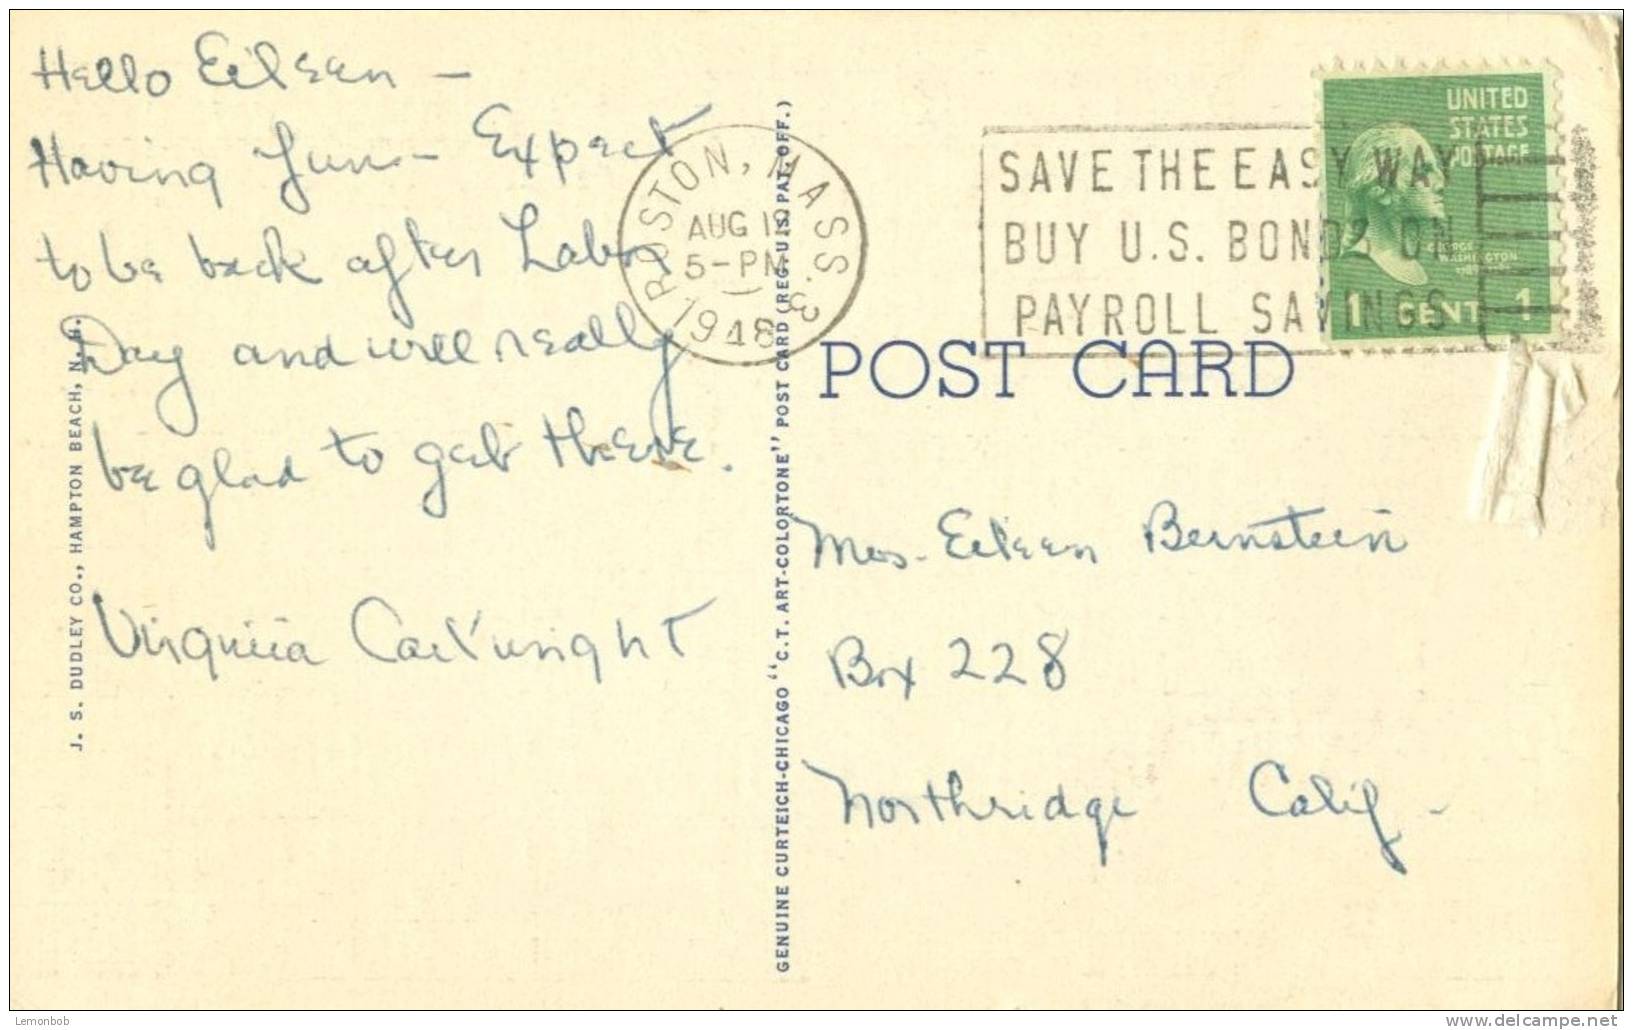 Hello Eileen –
Having fun – Expect
to be back after Labor
Day and will really
be glad to get there.
Virginia Cartwright
J. S. DUDLEY CO., HAMPTON BEACH, N. H.
GENUINE CURTEICH-CHICAGO "C.T. ART-COLORTONE" POST CARD (REG. U.S. PAT. OFF.)
BOSTON, MASS. 3
AUG
5-PM
1948
SAVE THE EASY WAY
BUY U.S. BONDS ON
PAYROLL SAVINGS
UNITED
STATES
POSTAGE
GEORGE
WASHINGTON
1 CENT 1
POST CARD
Mrs. Eileen Bernstein
Box 228
Northridge Calif.
Lemonbob
delcampe.net